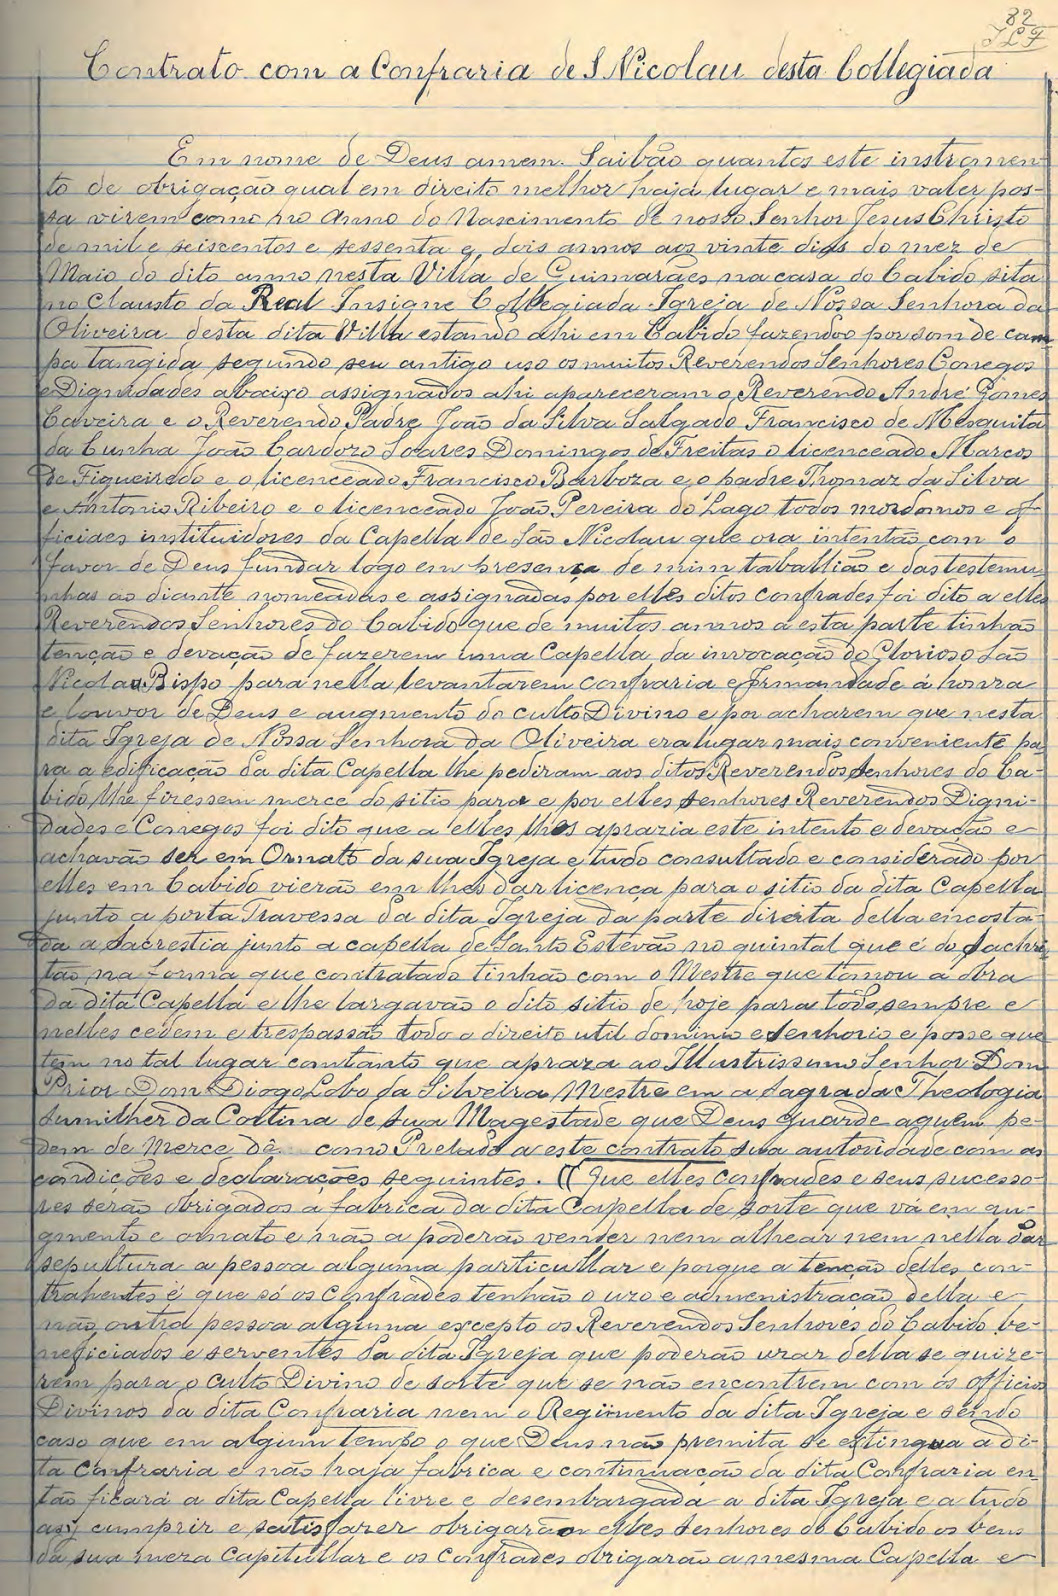 82
Contrato com a Confraria de S Nicolau desta Collegiada
Em nome de Deus amem. Saibão quantos este instromen-
to de obrigação qual em direito melhor haja lugar e mais valer pos-
sa virem como no Anno do Nascimento de nosso Senhor Jesus Christo
de mil e seiscentos e sessenta e dois annos aos vinte dias do mez de
Maio do dito anno nesta Villa de Guimarães na casa do Cabido sita
no Clausto da Real Insigne Collegiada Igreja de Nossa Senhora da
Oliveira desta dita Villa estando ahi em Cabido fazendoo por som de cam-
pa tangida segundo seu antigo uso os muitos Reverendos Senhores Conegos
e Dignidades abaixo assignados ahi apareceram o Reverendo André Gomes
Caveira e o Reverendo Padre João da Silva Salgado Francisco de Mesquita
da Cunha João Cardozo Soares Domingos de Freitas o licenceado Marcos
de Figueiredo e o licenceado Francisco Barboza e o padre Thomaz da Silva
e Antonio Ribeiro e o licenceado João Pereira do Lago todos mordomos e of-
ficiaes instituidores da Capella de São Nicolau que ora intentão com o
favor de Deus fundar logo em presença de mim taballião e das testemu-
nhas ao diante nomeadas e assignadas por elles ditos confrades foi dito a elles
Reverendos Senhores do Cabido que de muitos annos a esta parte tinhão
tenção e devação de fazerem uma Capella da invocação do Glorioso São
Nicolau Bispo para nella levantarem confraria e Irmandade á honra
e louvor de Deus e augmento do culto Divino e por acharem que nesta
dita Igreja de Nossa Senhora da Oliveira era lugar mais conveniente pa-
ra a edificação da dita Capella lhe pediram aos ditos Reverendos Senhores do Ca-
bido lhe fizessem merce do sitio para e por elles senhores Reverendos Digni-
dades e Conegos foi dito que a elles lhes aprazia este intento e devação e
achavão ser em Ornato da sua Igreja e tudo consultado e considerado por
elles em Cabido vierão em lhes dar licença para o sitio da dita Capella
junto a porta Travessa da dita Igreja da parte direita della encosta-
da a Sacrestia junto a capella de Santo Estevão no quintal que é do Sachris-
tão na forma que contratado tinhão com o Mestre que tomou a obra
da dita Capella e lhe largavão o dito sitio de hoje para todo sempre e
nelles cedem e trespassão todo o direito util dominio e senhorio e posse que
tem no tal lugar comtanto que apraza ao Illustrissimo Senhor Dom
Prior Dom Diogo Lobo da Silveira Mestre em a Sagrada Theologia
Sumilher da Cortina de sua Magestade que Deus guarde aquem pe-
dem de Merce dê como Prelado a este contrato sua autoridade com as
condições e declarações seguintes. Que elles confrades e seus sucesso-
res serão obrigados a fabrica da dita Capella de sorte que vá em au-
gmento e ornato e não a poderão vender nem alhear nem nella dar
sepultura a pessoa alguma particullar e porque a tenção delles con-
trahentes é que só os confrades tenhão o uzo e admenistração della e
não outra pessoa alguma excepto os Reverendos Senhores do Cabido be-
neficiados e serventes da dita Igreja que poderão uzar della se quize-
rem para o culto Divino de sorte que se não encontrem com os officios
Divinos da dita Confraria nem o Regimento da dita Igreja e sendo
caso que em algum tempo o que Deus não premita se extingua a di-
ta confraria e não haja fabrica e continuação da dita Confraria en-
tão ficará a dita Capella livre e desembargada a dita Igreja e a tudo
assy cumprir e satisfazer obrigarão elles Senhores do Cabido os bens
da sua meza capitullar e os confrades obrigarão a mesma Capella e